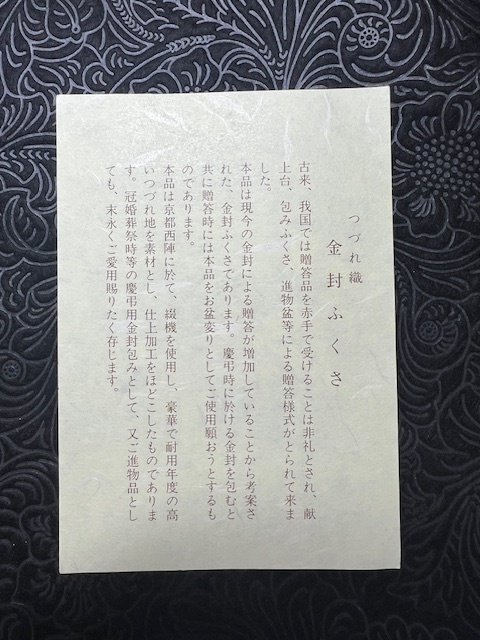 つづれ織
金封ふくさ
古来、我国では贈答品を赤手で受けることは非礼とされ、献
上台、包みふくさ、進物盆等による贈答様式がとられて来ま
した。
本品は現今の金封による贈答が増加していることから考案さ
れた、金封ふくさであります。慶弔時に於ける金封を包むと
共に贈答時には本品をお盆変りとしてご使用願おうとするも
のであります。
本品は京都西陣に於て、綴機を使用し、豪華で耐用年度の高
いつづれ地を素材とし、仕上加工をほどこしたものでありま
す。冠婚葬祭時等の慶弔用金封包みとして、又ご進物品とし
ても、末永くご愛用賜りたく存じます。